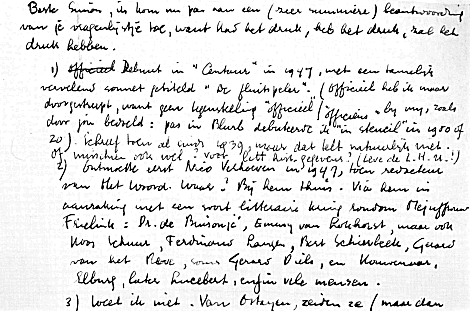 Beste Simon, ik kom nu pas aan een (zeer summiere) beantwoording
van je vragenlijstje toe, want had het druk, heb het druk, zal het
druk hebben.
1) officieel Debuut in "Centaur" in 1947, met een tamelijk
vervelend sonnet getiteld "De fluitspeler". (Officieel heb ik maar
doorgestreept, want geen tegenstelling officieel / officieus by my, zoals
door jou bedoeld: pas in Blurb debuteerde ik "in stencil" in 1950 of
zo). Schreef toen al sinds 1939, maar dat telt natuurlijk niet.
Of misschien ook wel? voor lett. hist. gegevens? (Leve de L.H.U.!)
2) Ontmoette eerst Nico Verhoeven in 1947, toen redacteur
van Het Woord. Waar? Bij hem thuis. Via hem in
aanraking met een soort litteraire kring rondom Mejuffrouw
: Dr. de Buisonjé, Emmy van Lokhorst, maar ook
Koos Schuur, Ferdinand Langen, Bert Schierbeek, Gerard
van het Reve, soms Gerard Diels, en Kouwenaar,
Elburg, later Lucebert, enfin vele mensen.
3) Weet ik niet. Van Ostayen, zeiden ze (maar dan